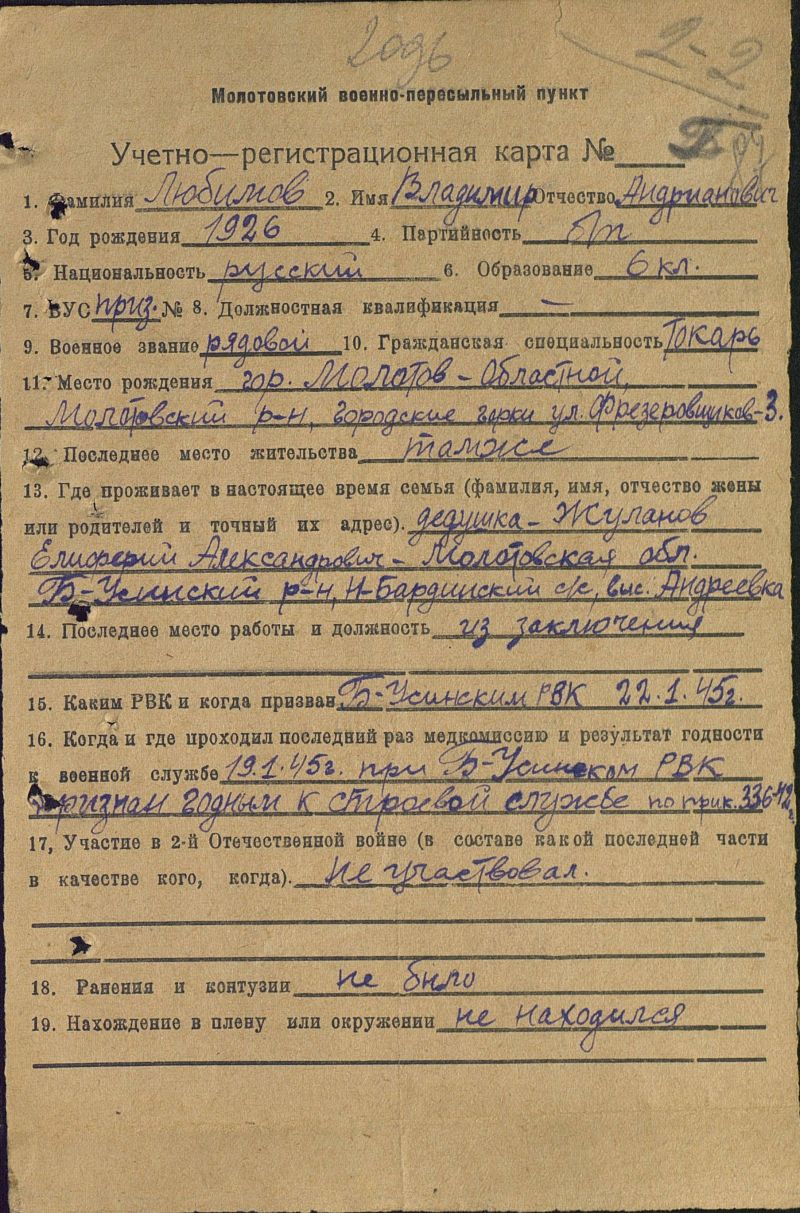 2-2
Молотовский военно-пересыльный пункт
Учетно—регистрационная карта №
1. Фамилия Любимов 2. Имя Владимир Отчество Андрианович
3. Год рождения 1926 4. Партийность б/п
5. Национальность русский 6. Образование 6 кл.
7. ВУС приз. № 8. Должностная квалификация —
9. Военное звание рядовой 10. Гражданская специальность Токарь
11. Место рождения гор. Молотов - Областной,
Молотовский р-н, городские горки ул. Фрезеровщиков-3.
12. Последнее место жительства тамже
13. Где проживает в настоящее время семья (фамилия, имя, отчество жены
или родителей и точный их адрес). дедушка - Жуланов
Елиферий Александрович - Молотовская обл.
Б-Усинский р-н, Н-Бардинский с/с, выс. Андреевка
14. Последнее место работы и должность из заключения
15. Каким РВК и когда призван Б-Усинским РВК 22.1.45г.
16. Когда и где проходил последний раз медкомиссию и результат годности
к военной службе 19.1.45г. при Б-Усинском РВК
признан годным к строевой службе по прик. 336-42г.
17, Участие в 2-й Отечественной войне (в составе какой последней части
в качестве кого, когда). Не участвовал.
18. Ранения и контузии не было
19. Нахождение в плену или окружении не находился